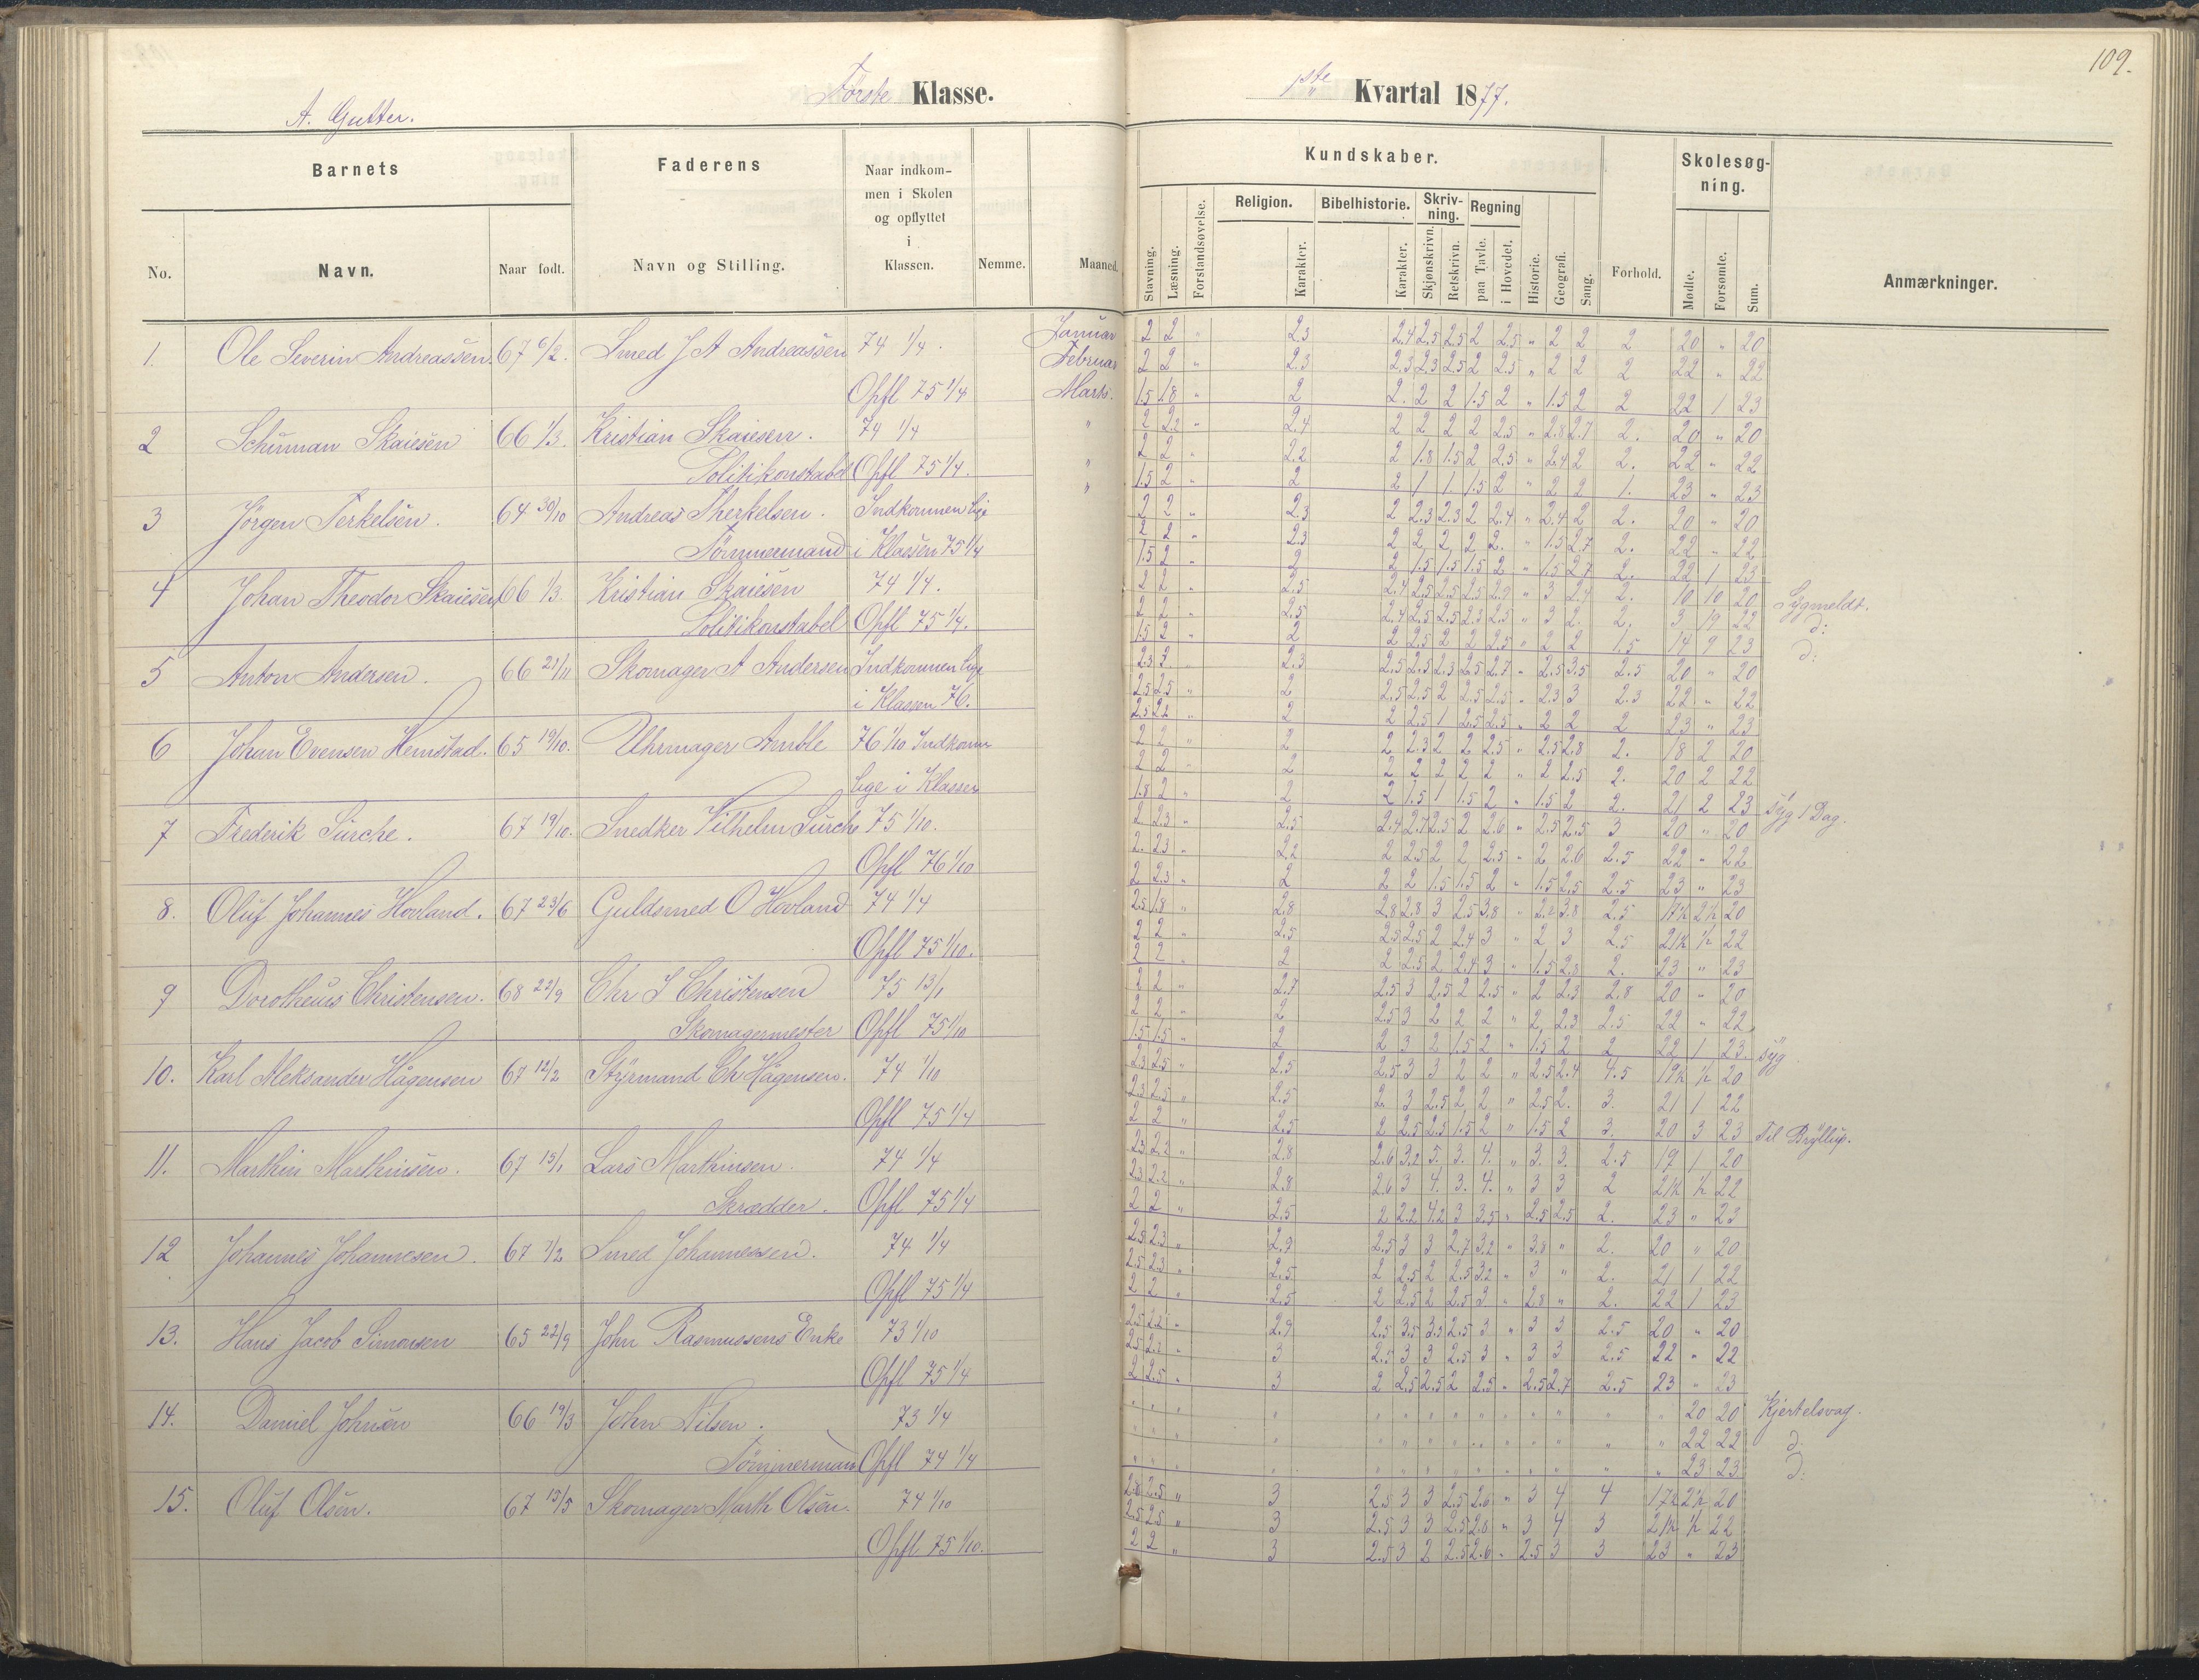 109.
Første Klasse.
1ste Kvartal 1877.
A. Gutter.
Barnets
Faderens
Naar indkom-
men i Skolen
og opflyttet
i
Klassen.
Kundskaber.
Skolesøg-
ning.
No.
Navn.
Naar født.
Navn og Stilling.
Nemme.
Maaned.
Stavning.
Læsning.
Forstandsøvelse.
Religion.
Karakter.
Bibelhistorie.
Karakter.
Skriv-
ning.
Skjønskrivn.
Retskrivn.
Regning
paa Tavle.
i Hovedet.
Historie.
Geografi.
Sang.
Forhold.
Mødte.
Forsømte.
Sum.
Anmærkninger.
1. Ole Severin Andreassen. 67 6/2. Smed J A Andreassen 74 1/4. Januar 2 2 " 2.3 2.4 2.5 2.5 2 2.5 " 2 2 2 20 " 20
Februar 2 2 " 2.3 2.3 2.3 2.5 2 2.5 " 2 2 2 22 " 22
Opfl 75 1/4 Marts. 1.5 1.8 " 2 2. 2 2 1.5 2 " 1.5 2 2 22 1 23
2 Schuman Skaiesen 66 1/3. Kristian Skaiesen. 74 1/4 " 2 2.2 " 2.4 2 2 2 2 2.5 " 2.8 2.7 2. 20 " 20
Politikonstabel Opfl 75 1/4. " 2 2 " 2.2 2 1.8 1.5 2 2.5 " 2.4 2 2. 22 " 22
" 1.5 2 " 2 2 1 1. 1.5 2 " 2 2 1. 23 " 23
3 Jörgen Terkelsen. 64 30/10 Andreas Therkelsen. Indkommen lige 2 2 " 2.3 2 2.3 2.3 2 2.4 " 2.4 2 2. 20 " 20
Tømmermand i Klassen 75 1/4 2 2 " 2.3 2 2 2 2 2. " 1.5 2.7 2. 22 " 22
1.5 2 " 2 2 1.5 1.5 1.5 2 " 1.5 2.7 2. 22 1 23
4 Johan Theodor Skaiesen 66 1/3. Kristian Skaiesen 74 1/4. 2 2 " 2.5 2.4 2.5 2.5 2.5 2.7 " 3 2.4 2. 10 10 20 Sygmeldt.
Politikonstabel Opfl 75 1/4. 2 2 " 2.5 2.4 2.5 2.5 2.3 2.5 " 3 2. 2. 3 19 22 d:
1.5 2 " 2 2 2.5 2 2 2.5 " 2 2 1.5 14 9 23 d:
5 Anton Andersen. 66 21/11 Skomager A Andersen Indkommen lige 2.3 3 2.3 2.5 2.5 2.3 2.5 2.7 " 2.5 3.5 2.5 20 " 20
i Klassen 76. 2.5 2.5 " 2 2.5 2.5 2 2.5 2.5 " 2.3 3 2.3 22 " 22
2.5 2.2 " 2 2 2.5 1 2.5 2.5 " 2 2 2 23 " 23
6 Johan Evensen Hemstad. 65 19/10. Uhrmager Amble 76 1/10 Indkom 2 2 " 2 2 2.3 2 2 2.5 " 2.5 2.8 2. 18 2 20
lige i Klassen 2 2 " 2 2 2 2 2 2 " 2 2.5 2. 20 2 22
1.8 2 " 2 2 1.5 1 1.5 2 " 1.5 2 2. 21 2 23 Syg 1 Dag.
7 Frederik Lürche. 67 19/10. Snedker Vilhelm Lürche 75 1/10. 2 2.3 " 2.5 2.4 2.7 2.5 2 2.6 " 2.5 2.5 3 20 " 20
Opfl 76 1/10 2. 2.3 " 2.2 2 2.5 2 2 2.5 " 2 2.6 2.5 22 " 22
2 2.3 " 2 2 2 1.5 1.5 2 " 1.5 2.5 2.5 23 " 23
8. Oluf Johannes Hovland. 67 23/6 Guldsmed O Hovland 74 1/4 2.5 1.8 " 2.8 2.8 2.8 3 2.5 3.8 " 2.2 3.8 2.5 17½ 2½ 20
Opfl 75 1/10. 2 2 " 2.5 2.5 2.5 2 2.4 3 " 2 3 2.5 21½ ½ 22
2 2 " 2 2 2.5 2 2.4 3 " 1.5 2.8 2. 23 " 23
9 Dorotheus Christensen. 68 22/9 Chr J Christensen 75 13/1 2 2 " 2.7 2.5 3 2.5 2 2.5 " 2 2.3 2.8 20 " 20
Skomagermester Opfl 75 1/10 2 2 " 2 2.5 3 2 2 2 " 2 2.3 2.5 22 " 22
1.5 1.5 " 2 2 3 2 1.5 2 " 1.5 2 2 22 1 23. Syg.
10. Karl Aleksander Hågensen 67 12/2 Styrmand Chr Hågensen. 74 1/10 2.3 2.5 " 2.5 2.5 3 3 2 2 " 2.5 2.4 4.5 19½ ½ 20
Opfl 75 1/4 2.3 2.5 " 2.5 2 3 2.5 2 2 " 2.5 2. 3. 21 1 22
2 2 " 2.5 2 2.5 2.5 1.5 2 " 1.5 2 3. 20 3 23 Til Bryllup.
11. Marthin Marthinsen. 67 15/1 Lars Marthinsen. 74 1/4 2.3 2.2 " 2.8 2.6 3.2 5. 3. 4. " 3. 3. 2.5 19 1 20
Skrædder. Opfl 75 1/4 2.3 2.2 " 2.8 2.6 3 4. 3. 4. " 3 3 2 21½ ½ 22
2 2 " 2.5 2 2.2 4.2 3 3.5 " 2.5 2.5 2. 23 " 23
12 Johannes Johannesen. 67 7/2 Smed Johannessen. 74 1/4 2.5 2.3 " 2.9 2.5 3 3 2.7 3.2 " 3.8 " 2. 20 " 20
Opfl 75 1/4 2.5 2.3 " 2.5 2 2.5 2 2.5 3.2 " 3 " 2. 21 1 22
2 2 " 2.5 2 2.5 2 2.5 3 " 2.8 " 2. 22 1 23
13. Hans Jacob Simonsen 65 22/9 John Rasmussens Enke 73 1/10 2.5 2.2 " 2.9 2.5 3.5 3.5 2.5 3 " 3 3 2.5 20 " 20
Opfl 75 1/4 2.5 2.2 " 3 2.5 3 3 2.5 3 " 3 3 2.5 22 " 22
2 2.5 " 3 2 2.5 2.5 2 2.5 " 2.5 2.7 2.5 23 " 23
14. Daniel Johnsen 66 19/3 John Nilsen. 73 1/4 " " " " " " " " " " " " " " 20 20 Kjertelsvag.
Tömmermand Opfl 74 1/4 " " " " " " " " " " " " " " 22 22 d.
" " " " " " " " " " " " " " 23 23 d:
15. Oluf Olsen. 67 15/5 Skomager Marth Olsen. 74 1/10 2.6 2.5 " 3 2.5 3 3 2.5 2.6 " 3 4 4 17½ 2½ 20
Opfl. 75 1/10. 2.5 2.5 " 3 2.5 3 3 2.5 2.8 " 3 4 3 21½ ½ 22
2 2 " 3 2.5 3 2 2.5 2.6 " 2.5 3 3 23 " 23